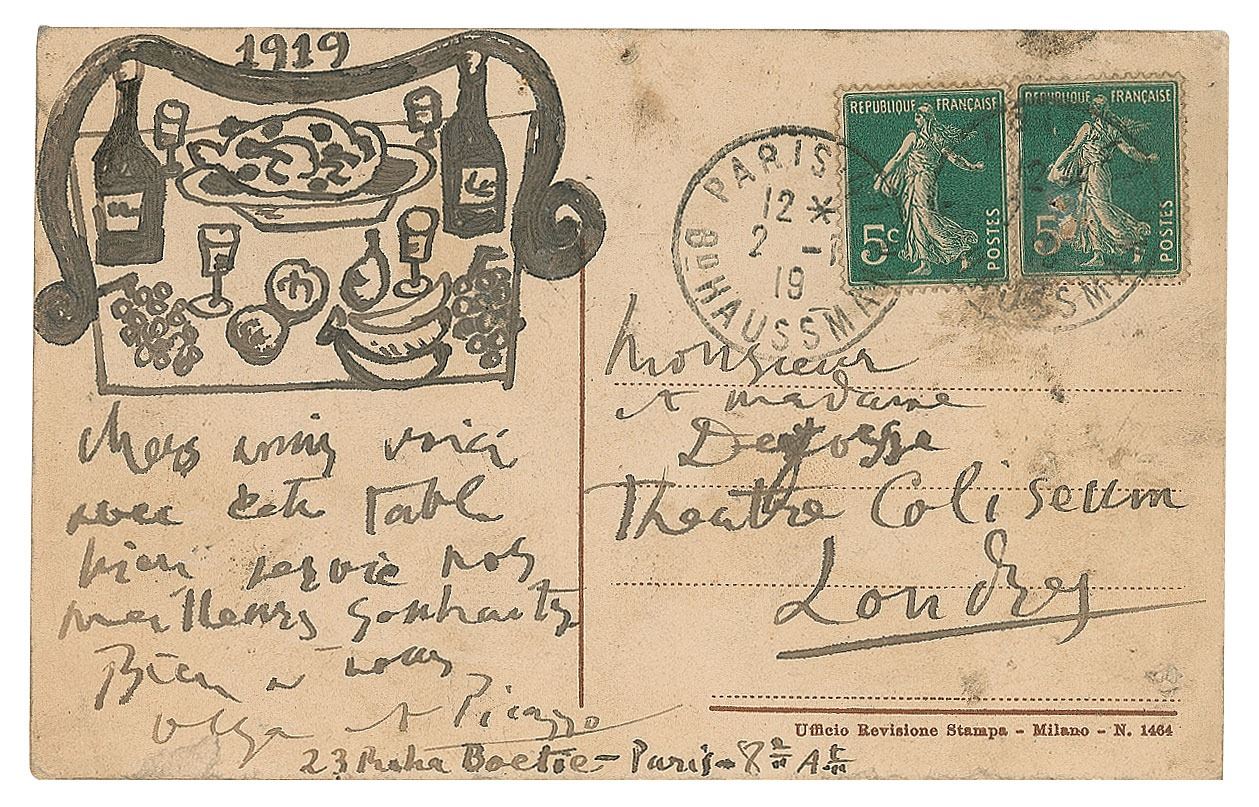 1919
chers amis voici
avec cette table
bien servie nos
meilleurs souhaits
Bien a vous
Olga et Picasso
23 Rue La Boetie - Paris - 8e Art
REPUBLIQUE FRANÇAISE
5c
POSTES
REPUBLIQUE FRANÇAISE
5c
POSTES
PARIS
12 *
2 -1
19
Bd HAUSSMA
USSM
Monsieur
et madame
Defosse
Theatre Coliseum
Londres
Ufficio Revisione Stampa - Milano - N. 1464